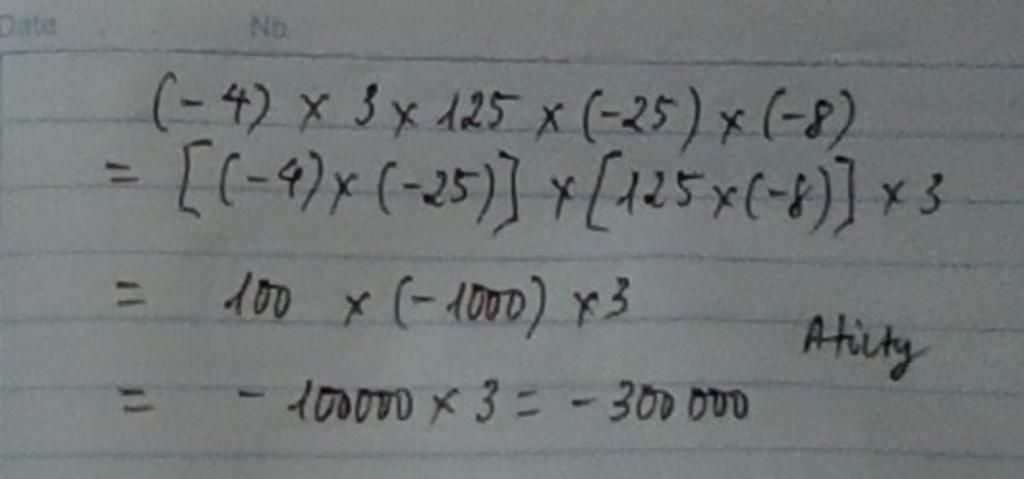 Date No
(-4) × 3 × 125 × (-25) × (-8)
= [(-4) × (-25)] × [125 × (-8)] × 3
= 100 × (-1000) × 3
Aticty
= - 100000 × 3 = - 300 000